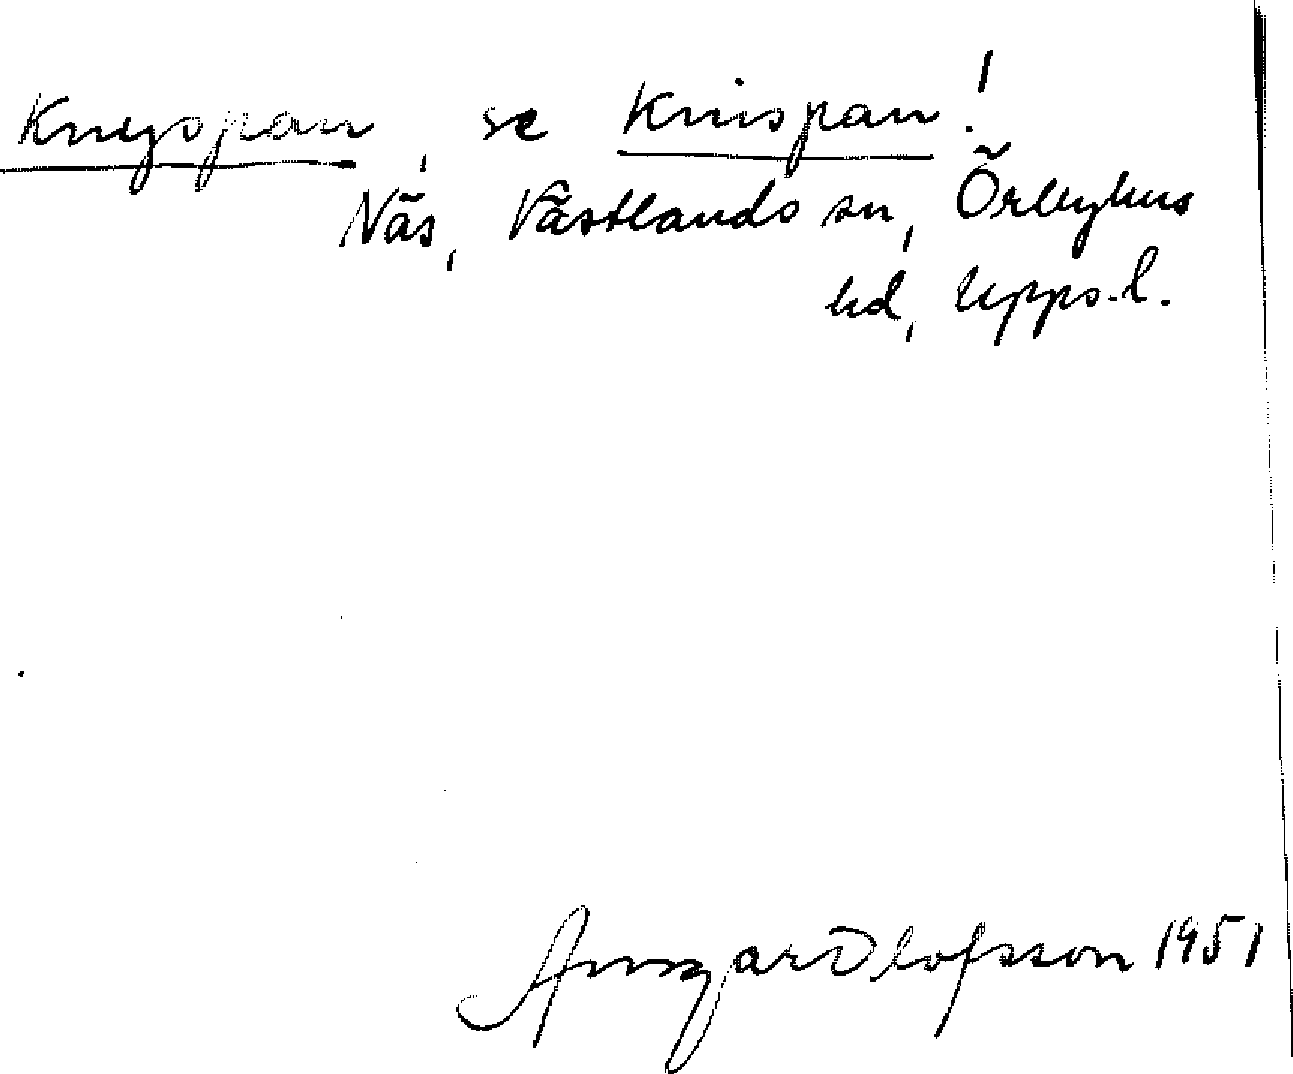 Knyspan, se Knispan!
Näs, Västlands sn, Örbyhus
hd, Upps. l.
Ansgar Olofsson 1951